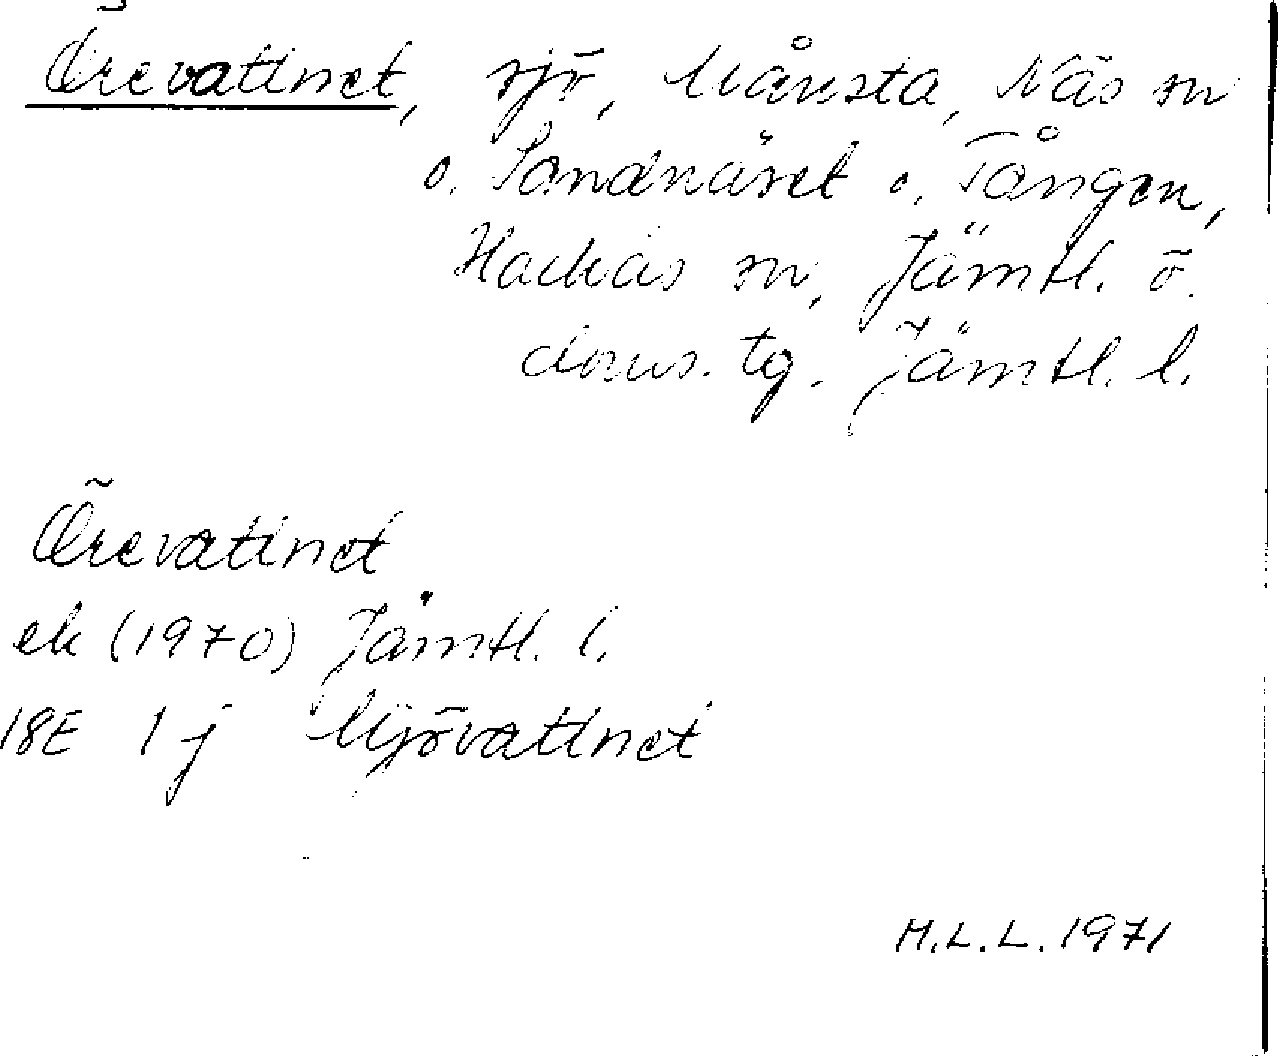 Örevattnet, sjö, Månsta, Näs sn
o. Sandnäset o. Tången,
Hackås sn, Jämtl. ö.
doms. tg. Jämtl. l.
Örevattnet
ek (1970) Jämtl. l.
18E 1j Mjövattnet
M.L.L. 1971